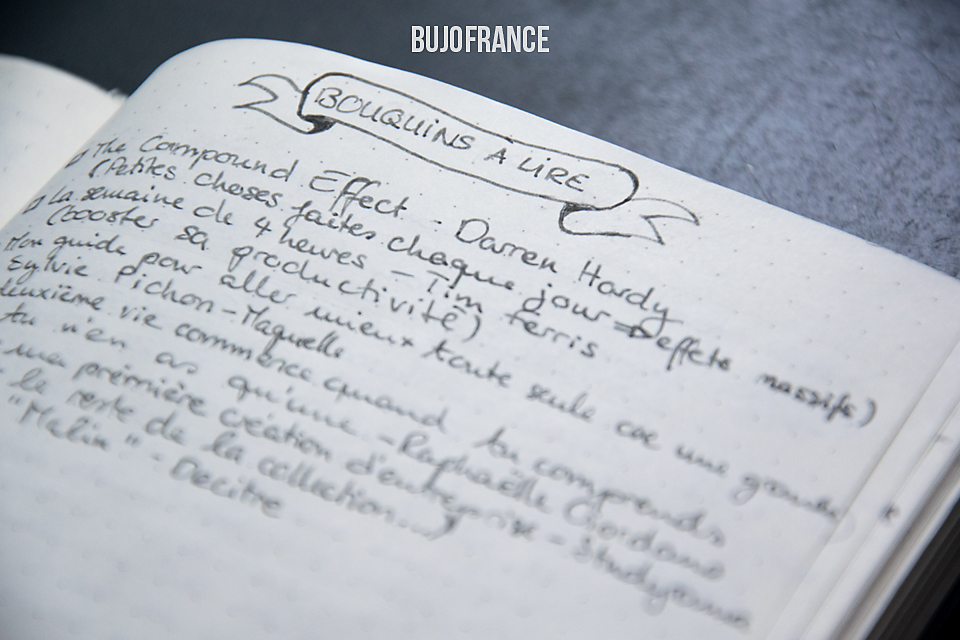 BUJOFRANCE
BOUQUINS A LIRE
The Compound Effect - Darren Hardy
(Petites choses faites chaque jour → effets massifs)
La semaine de 4 heures - Tim Ferris
(booster sa productivité)
Mon guide pour aller mieux toute seule cœ une grande
Sylvie Pichon-Maquelle
deuxième vie commence quand tu comprends
tu n'en as qu'une - Raphaëlle Giordano
ma prémière création d'entreprise - Studyrama
le reste de la collection...)
"Malin" - Decitre